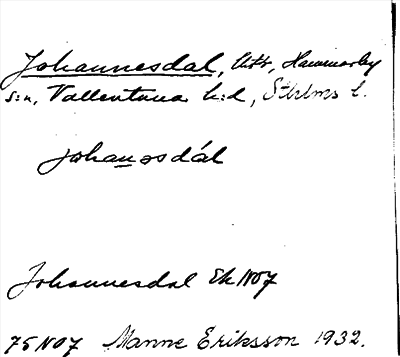 Johannesdal, Utb, Hammarby
s:n, Vallentuna h:d, Sthlms l.
johanosdál
Johannesdal Ek 1107
75 N07 Manne Eriksson 1932.